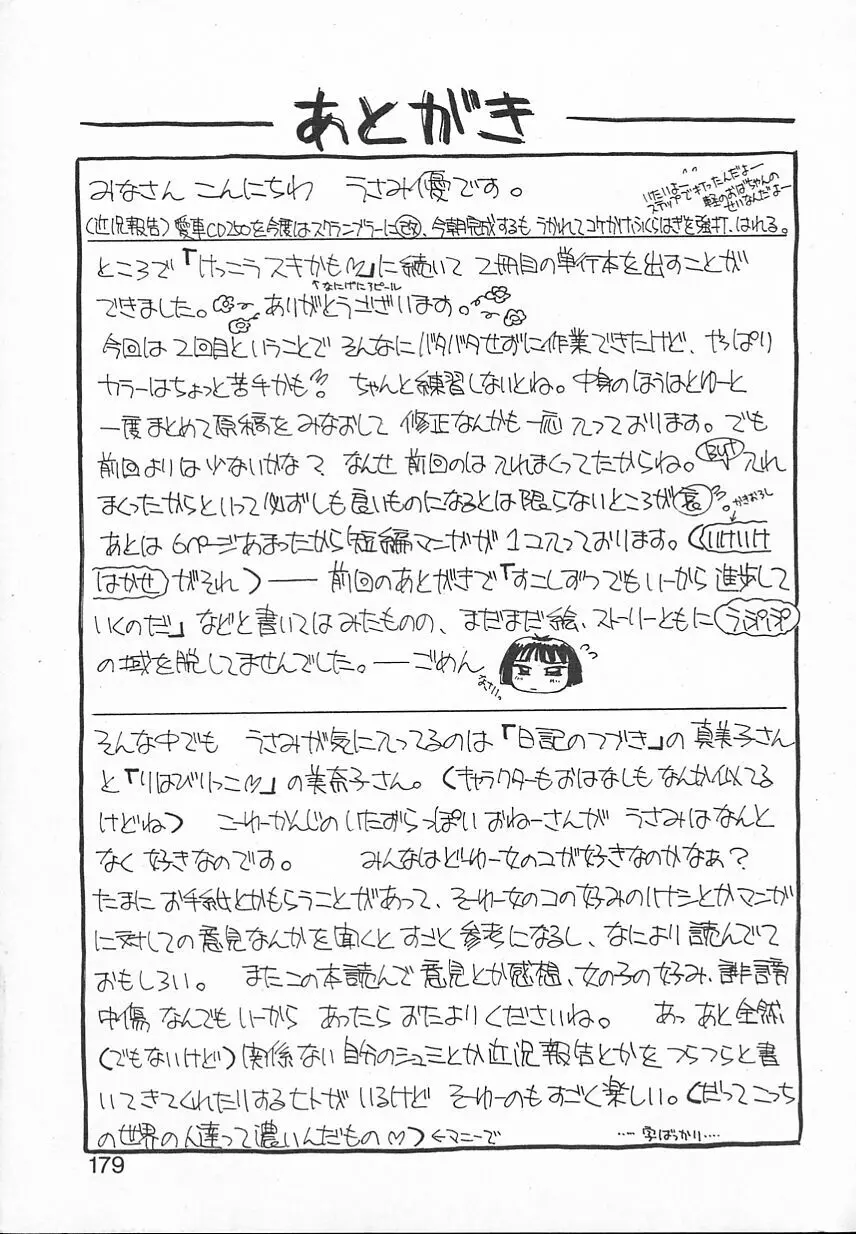 あとがき
みなさん こんにちわ うさみ優です。
いたいよー
ステップで打ったんだよー
軽のおばちゃんの
せいなんだよー
(近況報告) 愛車CD250を今度はスクランブラーに改、今朝完成するも うかれてコケかけふくらはぎを強打、はれる。
ところで「けっこうスキかも♡」に続いて 2冊目の単行本を出すことが
↑なにげにアピール
できました。 ありがとうございます。
今回は2回目ということで そんなにバタバタせずに作業できたけど、やっぱり
カラーはちょっと苦手かも ちゃんと練習しないとね。中身のほうはとゆーと
一度まとめて原稿をみなおして 修正なんかも一応入っております。でも
前回よりは少ないかな? なんせ前回のは入れまくってたからね。But 入れ
まくったからといって必ずしも良いものになるとは限らないところが 哀。
かきおろし
あとは 6ページあまったから短編マンガが1コ入っております。(いけいけ
はかせ がそれ) ── 前回のあとがきで「すこしずつでもいーから進歩して
いくのだ」などと書いてはみたものの、まだまだ絵、ストーリーともに うぷぷぷ
の域を脱してませんでした。──ごめん
なさい。
そんな中でも うさみが気に入ってるのは「日記のつづき」の真美子さん
と「りはびりっこ♡」の美奈子さん。(キャラクターもおはなしもなんか似てる
けどね) こーゆーかんじのいたずらっぽいおねーさんが うさみはなんと
なく好きなのです。 みんなはどーゆー女のコが好きなのかなあ?
たまにお手紙とかもらうことがあって、そーゆー女のコの好みのハナシとかマンガ
に対しての意見なんかを聞くと すごく参考になるし、なにより読んでて
おもしろい。 またこの本読んで意見とか感想、女の子の好み、誹謗
中傷 なんでもいーから あったらおたよりくださいね。 あっ あと全然
(でもないけど) 関係ない自分のシュミとか近況報告とかを つらつらと書
いてきてくれたりするヒトが いるけど そーゆーのもすごく楽しい。(だってこっち
の世界の人達って濃いんだもの♡) ←マニーで
……字ばっかり….
179